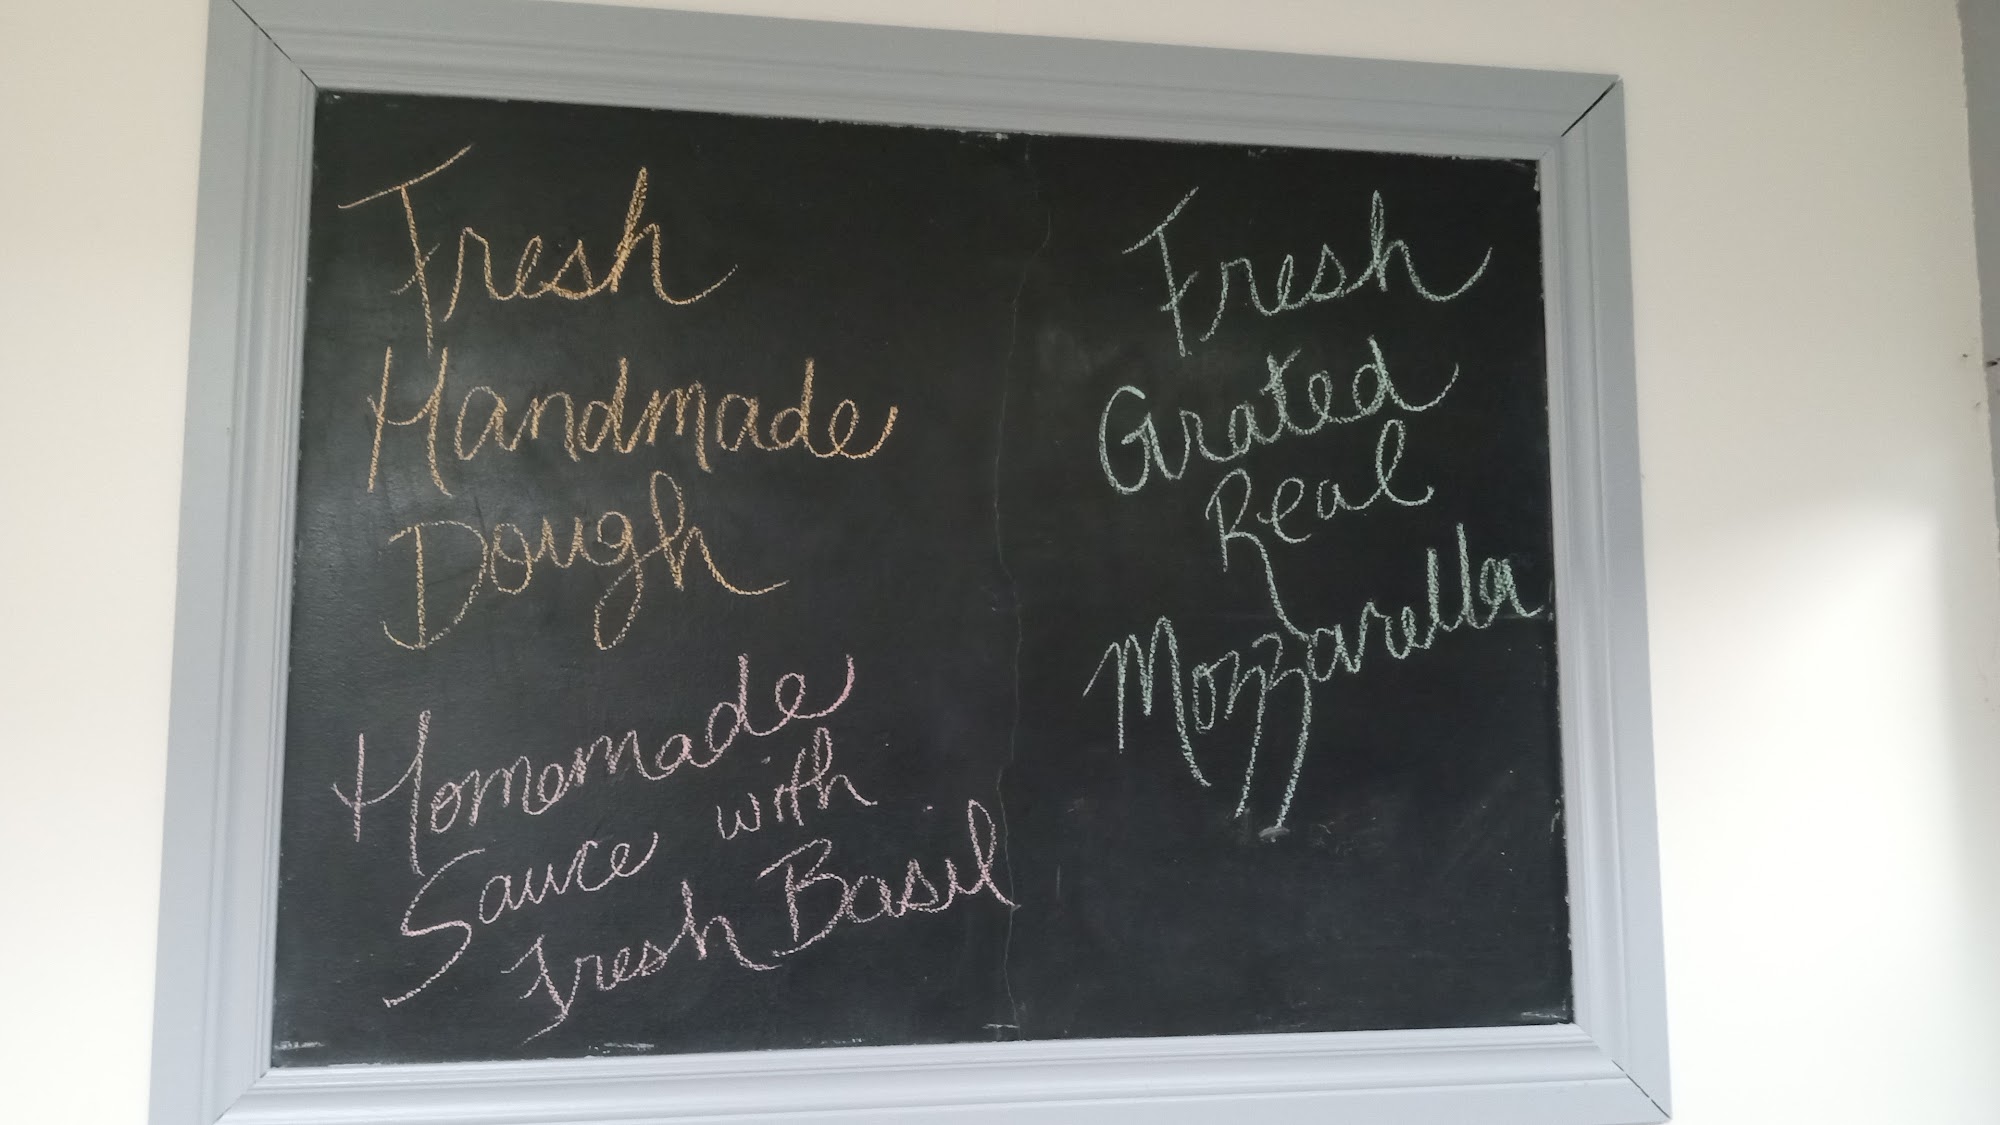 Fresh
Handmade
Dough
Homemade
Sauce with
Fresh Basil
Fresh
Grated
Real
Mozzarella